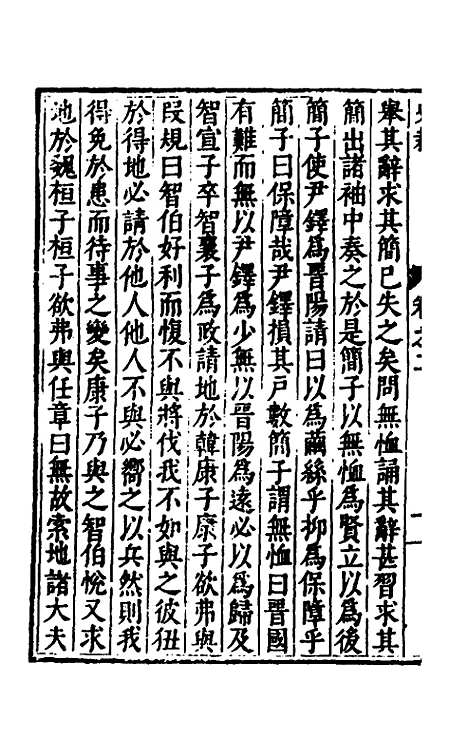 舉其辭求其簡已失之矣問無恤誦其辭甚習求其
簡出諸袖中奏之於是簡子以無恤爲賢立以爲後
簡子使尹鐸爲晉陽請曰以爲繭絲乎抑爲保障乎
簡子曰保障哉尹鐸損其戶數簡子謂無恤曰晉國
有難而無以尹鐸爲少無以晉陽爲遠必以爲歸及
智宣子卒智襄子爲政請地於韓康子康子欲弗與
段規曰智伯好利而愎不與將伐我不如與之彼狃
於得地必請於他人他人不與必嚮之以兵然則我
得免於患而待事之變矣康子乃與之智伯悅又求
地於魏桓子桓子欲弗與任章曰無故索地諸大夫